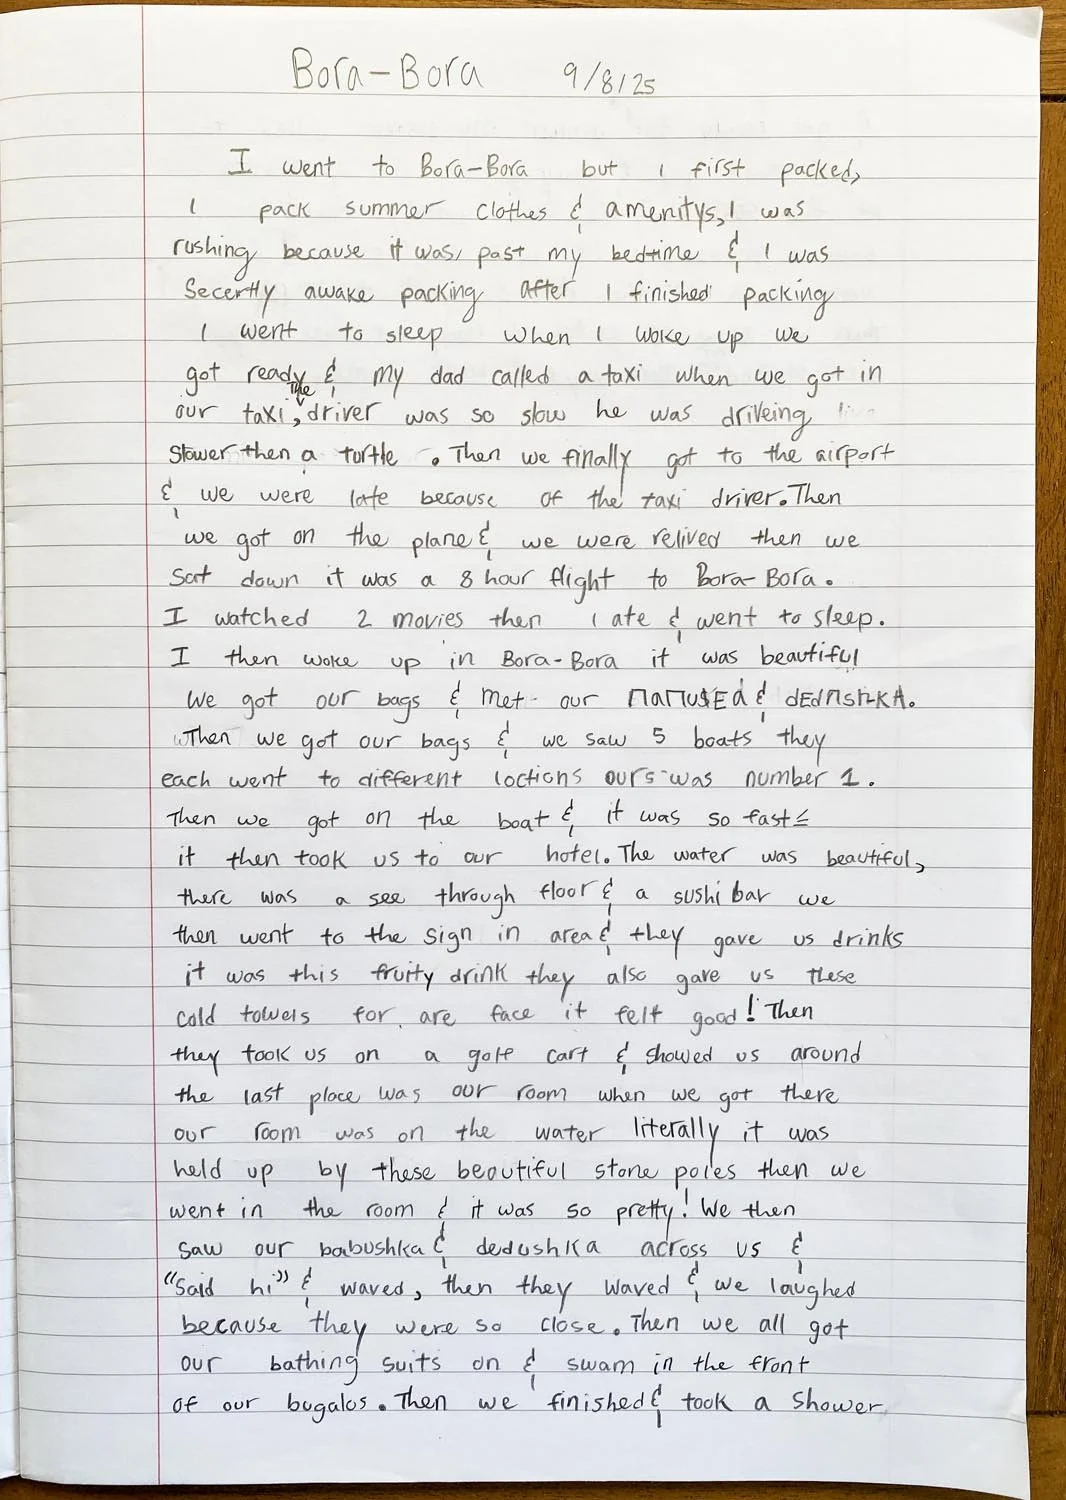 Bora-Bora 9/8/25
I went to Bora-Bora but I first packed,
I pack summer clothes & amenitys, I was
rushing because it was, past my bedtime & I was
Secertly awake packing after I finished packing
I went to sleep when I woke up we
got ready & my dad called a taxi when we got in
our taxi, the driver was so slow he was driveing
slower then a turtle . Then we finally got to the airport
& we were late because of the taxi driver. Then
we got on the plane & we were relived then we
sat down it was a 8 hour flight to Bora-Bora.
I watched 2 movies then I ate & went to sleep.
I then woke up in Bora-Bora it was beautiful
we got our bags & met our & 
Then we got our bags & we saw 5 boats they
each went to different loctions ours was number 1.
Then we got on the boat & it was so fast
it then took us to our hotel. The water was beautiful,
there was a see through floor & a sushi bar we
then went to the sign in area & they gave us drinks
it was this fruity drink they also gave us these
cold towels for are face it felt good! Then
they took us on a golf cart & showed us around
the last place was our room when we got there
our room was on the water literally it was
held up by these beautiful stone poles then we
went in the room & it was so pretty! We then
saw our babushka & dedushka across us &
"said hi" & waved, then they waved & we laughed
because they were so close. Then we all got
our bathing suits on & swam in the front
of our bugalos. Then we finished & took a shower